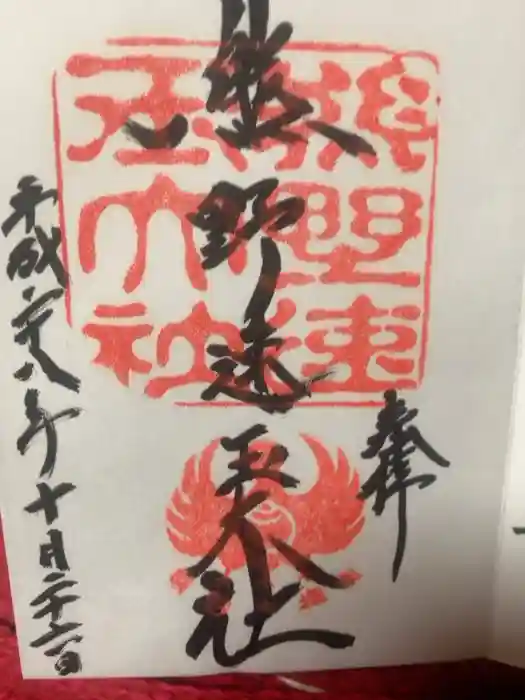 奉拝
熊野速玉大社
平成二十八年十月二十六日
熊野速玉大社